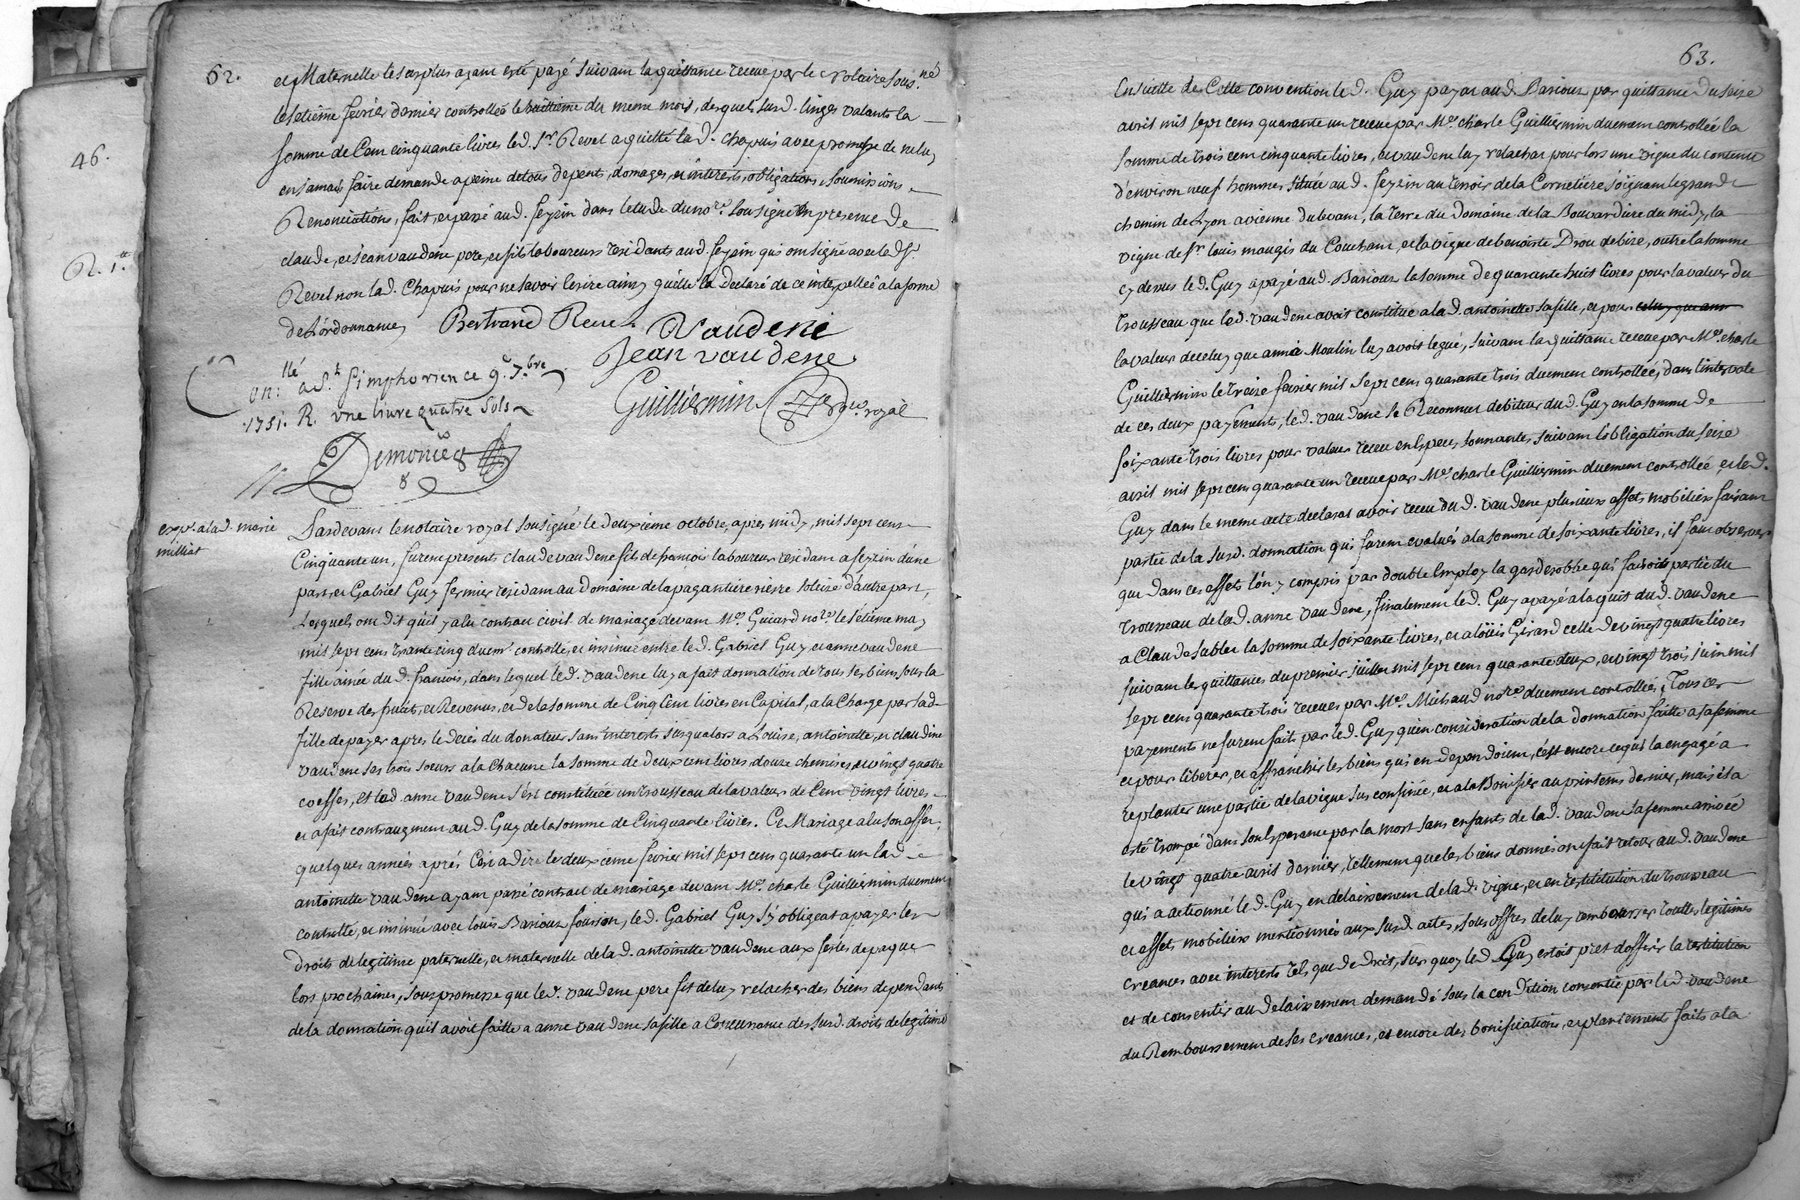 46.
R. 1.re
62.
et Maternelle le surplus ayant esté payé suivant la quittance receue par le notaire sousné
le setième fevrier dernier controllée le huittième du meme mois, desquels surd. linges valants la
somme de Cent cinquante livres led. Sr. Revel a quitté la d. chapuis avec promesse de ne luy
en jamais faire demande a peine de tous depents, domages, et interests, obligations, soumissions,
Renonciations, fait, et passé aud. feyzin dans l'etude du nore. sousigné en presence de
claude, et jean vaudene pere, et fils laboureurs residants aud. feyzin qui ont signé avec led. Sr.
Revel non la d. Chapuis pour ne savoir lecrire ainsy quélle la declaré de ce interpellée a la forme
de Lórdonnance, Bertrand Revel Vaudene
Jean vaudene
Guilliermin nore royal
Con:llé a St. Simphorien ce 9. 7.bre
1751. R. une livre quatre sols
Demonic
exp.é a la d. marie
milliat
Pardevant le notaire royal sousigné le deuxieme octobre, apres midy, mil sept cens
Cinquante un, furent presents claude vaudene fils de francois laboureur residant a feyzin d'une
part, et Gabriel Guy fermier residant au domaine de la pagantiere riere solaize d'autre part,
Lesquels ont dit qu'il y a eu contract civil de mariage devant Me. Guiard nore. le setième may
mil sept cens trante cinq duemt. controllé, et insinué entre led. Gabriel Guy, et anne vaudene
fille ainée du d. francois, dans lequel led. vaudene luy a fait donnation de tous ses biens sous la
Reserve des fruits, et Revenus, et de la somme de Cinq Cent livres en Capital, a la Charge par lad.
fille de payer apres le decès du donateur sans interests jusqualors a Louise, antoinette, et claudine
vaudene ses trois soeurs a la Chacune la somme de deux cent livres, douze chemises, et vingt quatre
coeffes, et lad. anne vaudene s'est constituée un trousseau de la valeur de Cent vingt livres
et a fait contraugment aud. Guy de la somme de Cinquante livres. Ce Mariage a eu son effet,
quelques années aprés C'est a dire le deuxieme fevrier mil sept cens quarante un lad.
antoinette vaudene ayant passé contract de mariage devant Me. charle Guilliermin duement
controllé, et insinué avec louis Barioux, led. Gabriel Guy s'y obligeat a payer les
droits de legitime paternelle, et maternelle de la d. antoinette vaudene aux festes de paque
lors prochaines, sous promesse que led. vaudene pere fit de luy relacher des biens dependants
de la donnation qu'il avoit faitte a anne vaudene sa fille a Concurrance des surd. droits de legitime
63.
Ensuitte de Cette convention le d. Guy payat aud. Barioux par quittance du seize
avril mil sept cens quarante un receue par Me. charle Guilliermin duement controllée la
somme de trois cent cinquante livres, et vaudene luy relachat pour lors une vigne du contenu
d'environ neuf hommes située aud. feyzin au terroir de la Cornetiere joignant le grand
chemin de Lyon a vienne du levant, la terre du domaine de la Bouvardiere du midy, la
vigne de Sr. louis maugis du Couchant, et la vigne de benoiste Drou de bize, outre la somme
cy dessus le d. Guy a payé aud. Barioux la somme de quarante huit livres pour la valeur du
trousseau que le d. vaudene avoit constitué a la d. antoinette sa fille, et pour celuy que ann
la valeur de celuy que annie Moulin luy avoit legué, suivant la quittance receue par Me. charle
Guilliermin le treize fevrier mil sept cens quarante trois duement controllée, dans l'intervale
de ces deux payements, le d. vaudene se Reconnut debiteur du d. Guy en la somme de
soixante trois livres pour valeur receue en Especes sonnantes suivant l'obligation du seize
avril mil sept cens quarante un receue par Me. charle Guilliermin duement controllée, et le d.
Guy dans le meme acte declarat avoir receu du d. vaudene plusieurs effets mobiliers faisant
partie de la surd. donnation qui furent evalués a la somme de soixante livres, il faut observer
que dans ces effets l'on y comprit par double Employ la garderobbe qui faisoit partie du
trousseau de la d. anne vaudene, finalement le d. Guy a payé a la quit du d. vaudene
a Claude sublet la somme de soixante livres, et a loüis Girard celle de vingt quatre livres
suivant les quittances du premier juillet mil sept cens quarante deux, et vingt trois juin mil
sept cens quarante trois receues par Me. Michaud nore. duement controllées, Tous ces
payements ne furent faits par le d. Guy qu'en consideration de la donnation faitte a sa femme
et pour liberer, et affranchir les biens qui en dependoient, c'est encore ce qui la engagé a
replanter une partie de la vigne sus confinée, et a la Bonifier au printems dernier, mais il a
esté trompé dans son Esperance par la mort sans enfants de la d. vaudene sa femme arrivée
le vingt quatre avril dernier, tellement que les biens donnés ont fait retour au d. vaudene
qui a actionné le d. Guy en delaissement de la d. vigne, et en restitution du trousseau
et effets mobiliers mentionnés aux surd. actes, sous offres de luy rembourser touttes legitimes
creances avec interests tels que de droit, sur quoy le d. Guy estoit prest d'offrir la restitution
et de consentir au delaissement demandé sous la condition consentie par le d. vaudene
du Remboursement de ses creances, et encore des bonifications, et plantement faits a la